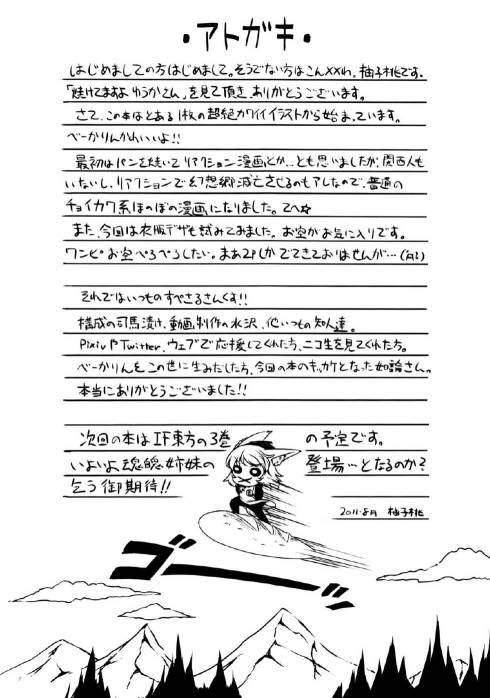 ・アトガキ・
はじめましての方はじめまして。そうでない方はこんxxわ、柚子桃です。
「焼けてますよ ゆうかさん」を見て頂き、ありがとうございます。
さて、この本はとある1枚の超絶カワイイイラストから始まっています。
べーかりんかわいいよ!!
最初はパンを焼いてリアクション漫画とか…とも思いましたが、関西人も
いないし、リアクションで幻想郷滅亡させるのもアレなので、普通の
チョイカワ系ほのぼの漫画になりました。てへ☆
また、今回は衣服デザも試みてみました。お空がお気に入りです。
ワンピお空ぺろぺろしたい。まあ2Pしかでてきておりませんが…
それではいつものすぺさるさんくす!!
構成の司馬漬け、動画制作の水沢、他いつもの知人達。
PixivやTwitter、ウェブで応援してくれた方、ニコ生を見てくれた方。
べーかりんをこの世に生みだした方、今回の本のキッカケとなった如諭さん。
本当にありがとうございました!!
次回の本はIF東方の3巻の予定です。
いよいよ姉妹の登場…となるのか?
乞う御期待!!
2011.8月 柚子桃
ゴーッ